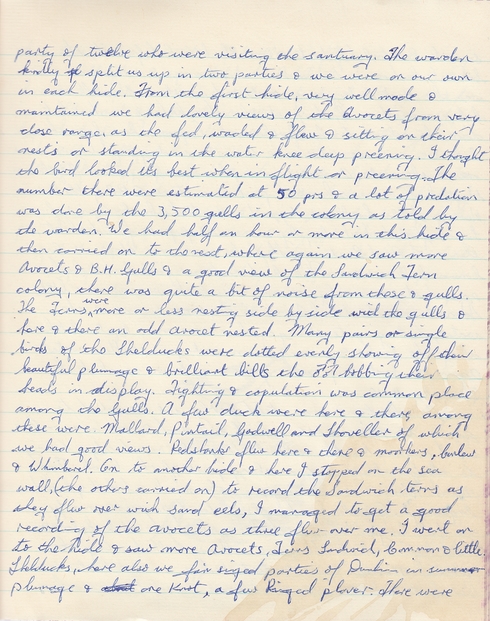 party of twelve who were visiting the sanctuary. The warden
kindly split us up in two parties & we were on our own
in each hide. From the first hide, very well made &
maintained we had lovely views of the Avocets from very
close range, as the fed, waded & flew & sitting on their
nests or standing in the water knee deep preening. I thought
the bird looked its best when in flight or preening. The
number there were estimated at 50 prs & a lot of predation
was done by the 3,500 gulls in the colony as told by
the warden. We had half an hour or more in this hide &
then carried on to the next, where again we saw more
Avocets & B.H. Gulls & a good view of the Sandwich Tern
colony, there was quite a bit of noise from these & gulls.
The Terns, were more or less nesting side by side with the gulls &
here & there an odd avocet nested. Many pairs or single
birds of the Shelducks were dotted evenly showing off their
beautiful plumage & brilliant bills the bobbing their
heads in display. Fighting & copulation was common place
among the Gulls. A few duck were here & there, among
these were Mallard, Pintail, Gadwell and Shoveller of which
we had good views. Redshanks flew here & there & moorhens, Curlew
& Whimbrel. On to another hide & here I stopped on the sea
wall, (the others carried on) to record the Sandwich terns as
they flew over with sand eels, I managed to get a good
recording of the avocets as three flew over me. I went on
to the hide & saw more Avocets, Terns Sandwich, Common & little,
Shelducks, here also we parties of Dunlin in summer
plumage & one Knot, a few Ringed plover. There were